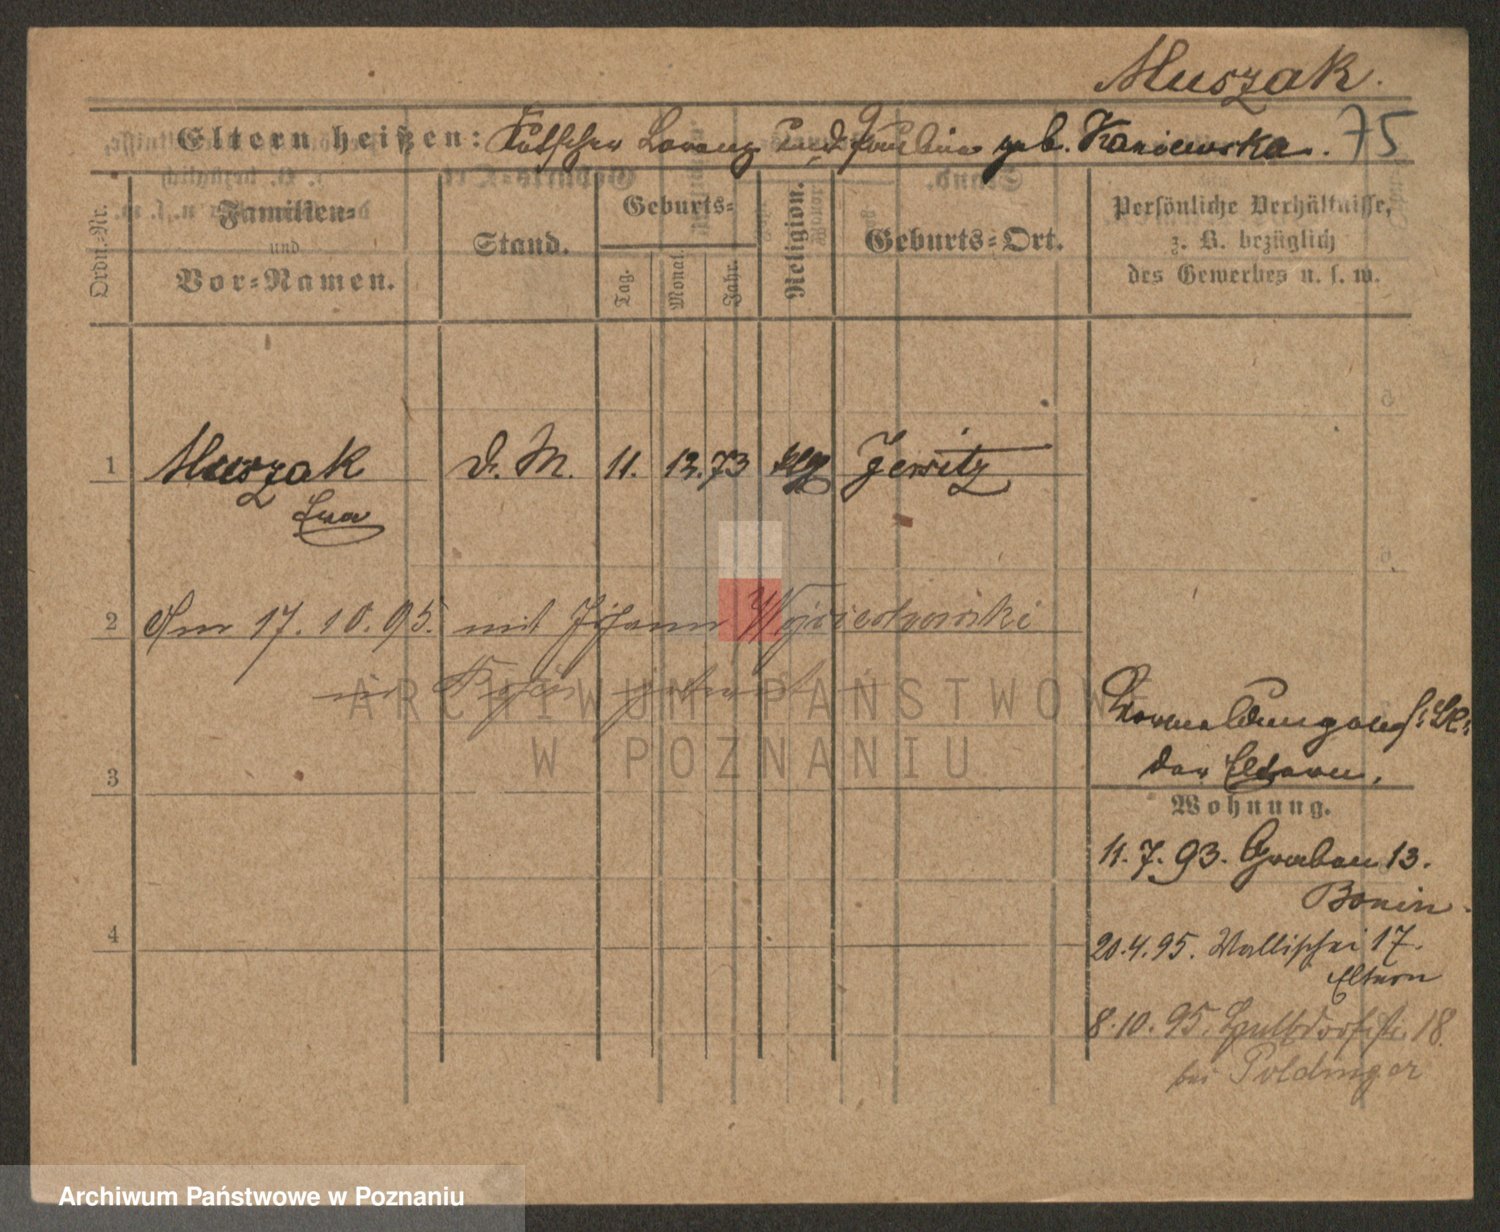 Muszak.
Eltern heißen: Kutscher Lorenz und Paulina geb. Kaniewska. 75
Ordn.-Nr.
Familien-
und
Vor-Namen.
Stand.
Geburts-
Tag.
Monat.
Jahr.
Religion.
Geburts-Ort.
Persönliche Verhältnisse,
z. B. bezüglich
des Gewerbes u. s. w.
1 Muszak d. M. 11. 12. 73 Jersitz
Eva
2 Am 17. 10. 95. mit Johann
in Posen
3
der Eltern.
Wohnung.
11. 7. 93. Graben 13.
Bonin.
4
20. 4. 95. Wallischei 17.
Eltern
8. 10. 95. 18.
bei Poldinger
ARCHIWUM PAŃSTWOWE
W POZNANIU
Archiwum Państwowe w Poznaniu